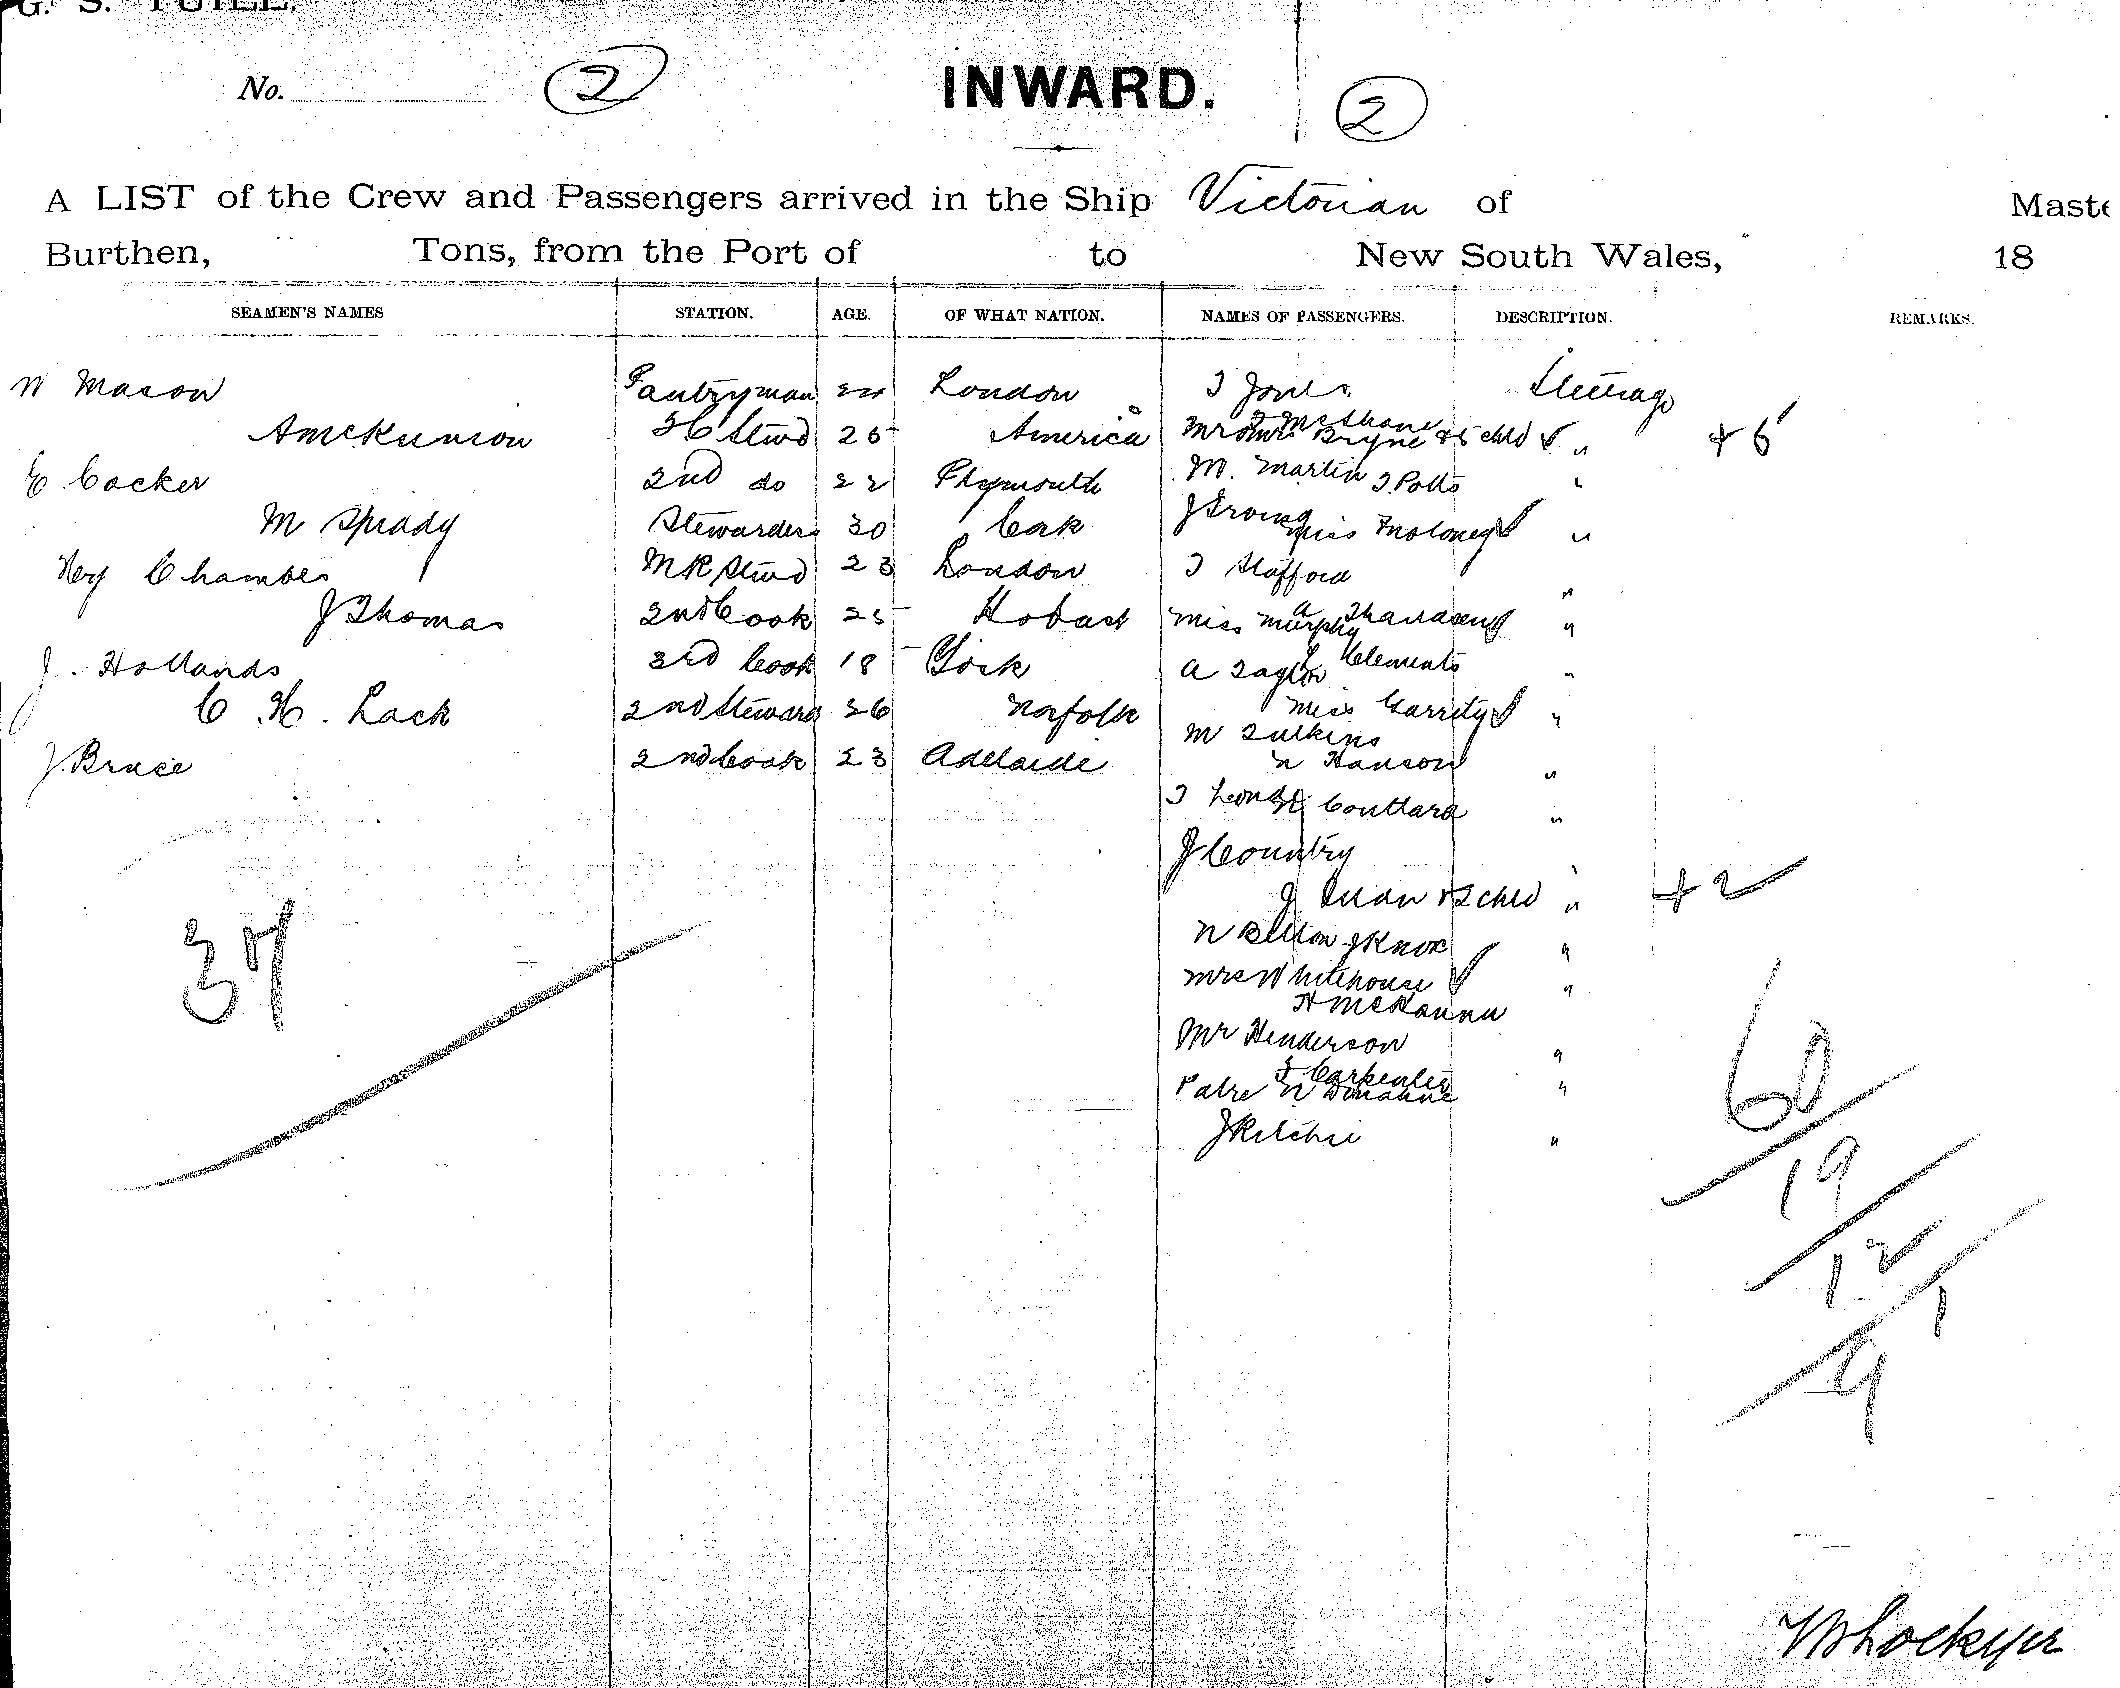 G. S. YUILL.
No. 2
INWARD. 2
A LIST of the Crew and Passengers arrived in the Ship Victorian of Maste
Burthen, Tons, from the Port of to New South Wales, 18
SEAMEN'S NAMES STATION. AGE. OF WHAT NATION. NAMES OF PASSENGERS. DESCRIPTION. REMARKS.
W Mason Pantryman London J Jones Steerage
A McKunnon Stwd 25 America McShane
Mr & Mrs Bryne & 5 chld " + 5
E Cocker 2nd do 22 Plymouth M. Martin J. Potts "
M Spiady Stewardess 30 Cork J Irving
Miss Moloney "
Hry Chambers M R Stwd 23 London J Stafford "
J Thomas 2nd Cook 25 Hobart Miss Murphy "
J. Hollands 3rd Cook 18 York A Taylor Clements "
C. H. Lack 2nd Steward 26 Norfolk Miss Garrity "
M Sulkins
J. Bruce 2nd Cook 23 Adelaide N Hanson "
Couttard "
J Country "
J & 2 chld " + 2
37
N J Knox "
Mrs Whitehouse "
H McKanna
Mr Henderson "
J Carpenter
N Donahue "
J Ritchie "
60
19
12
1
9
Lockyer